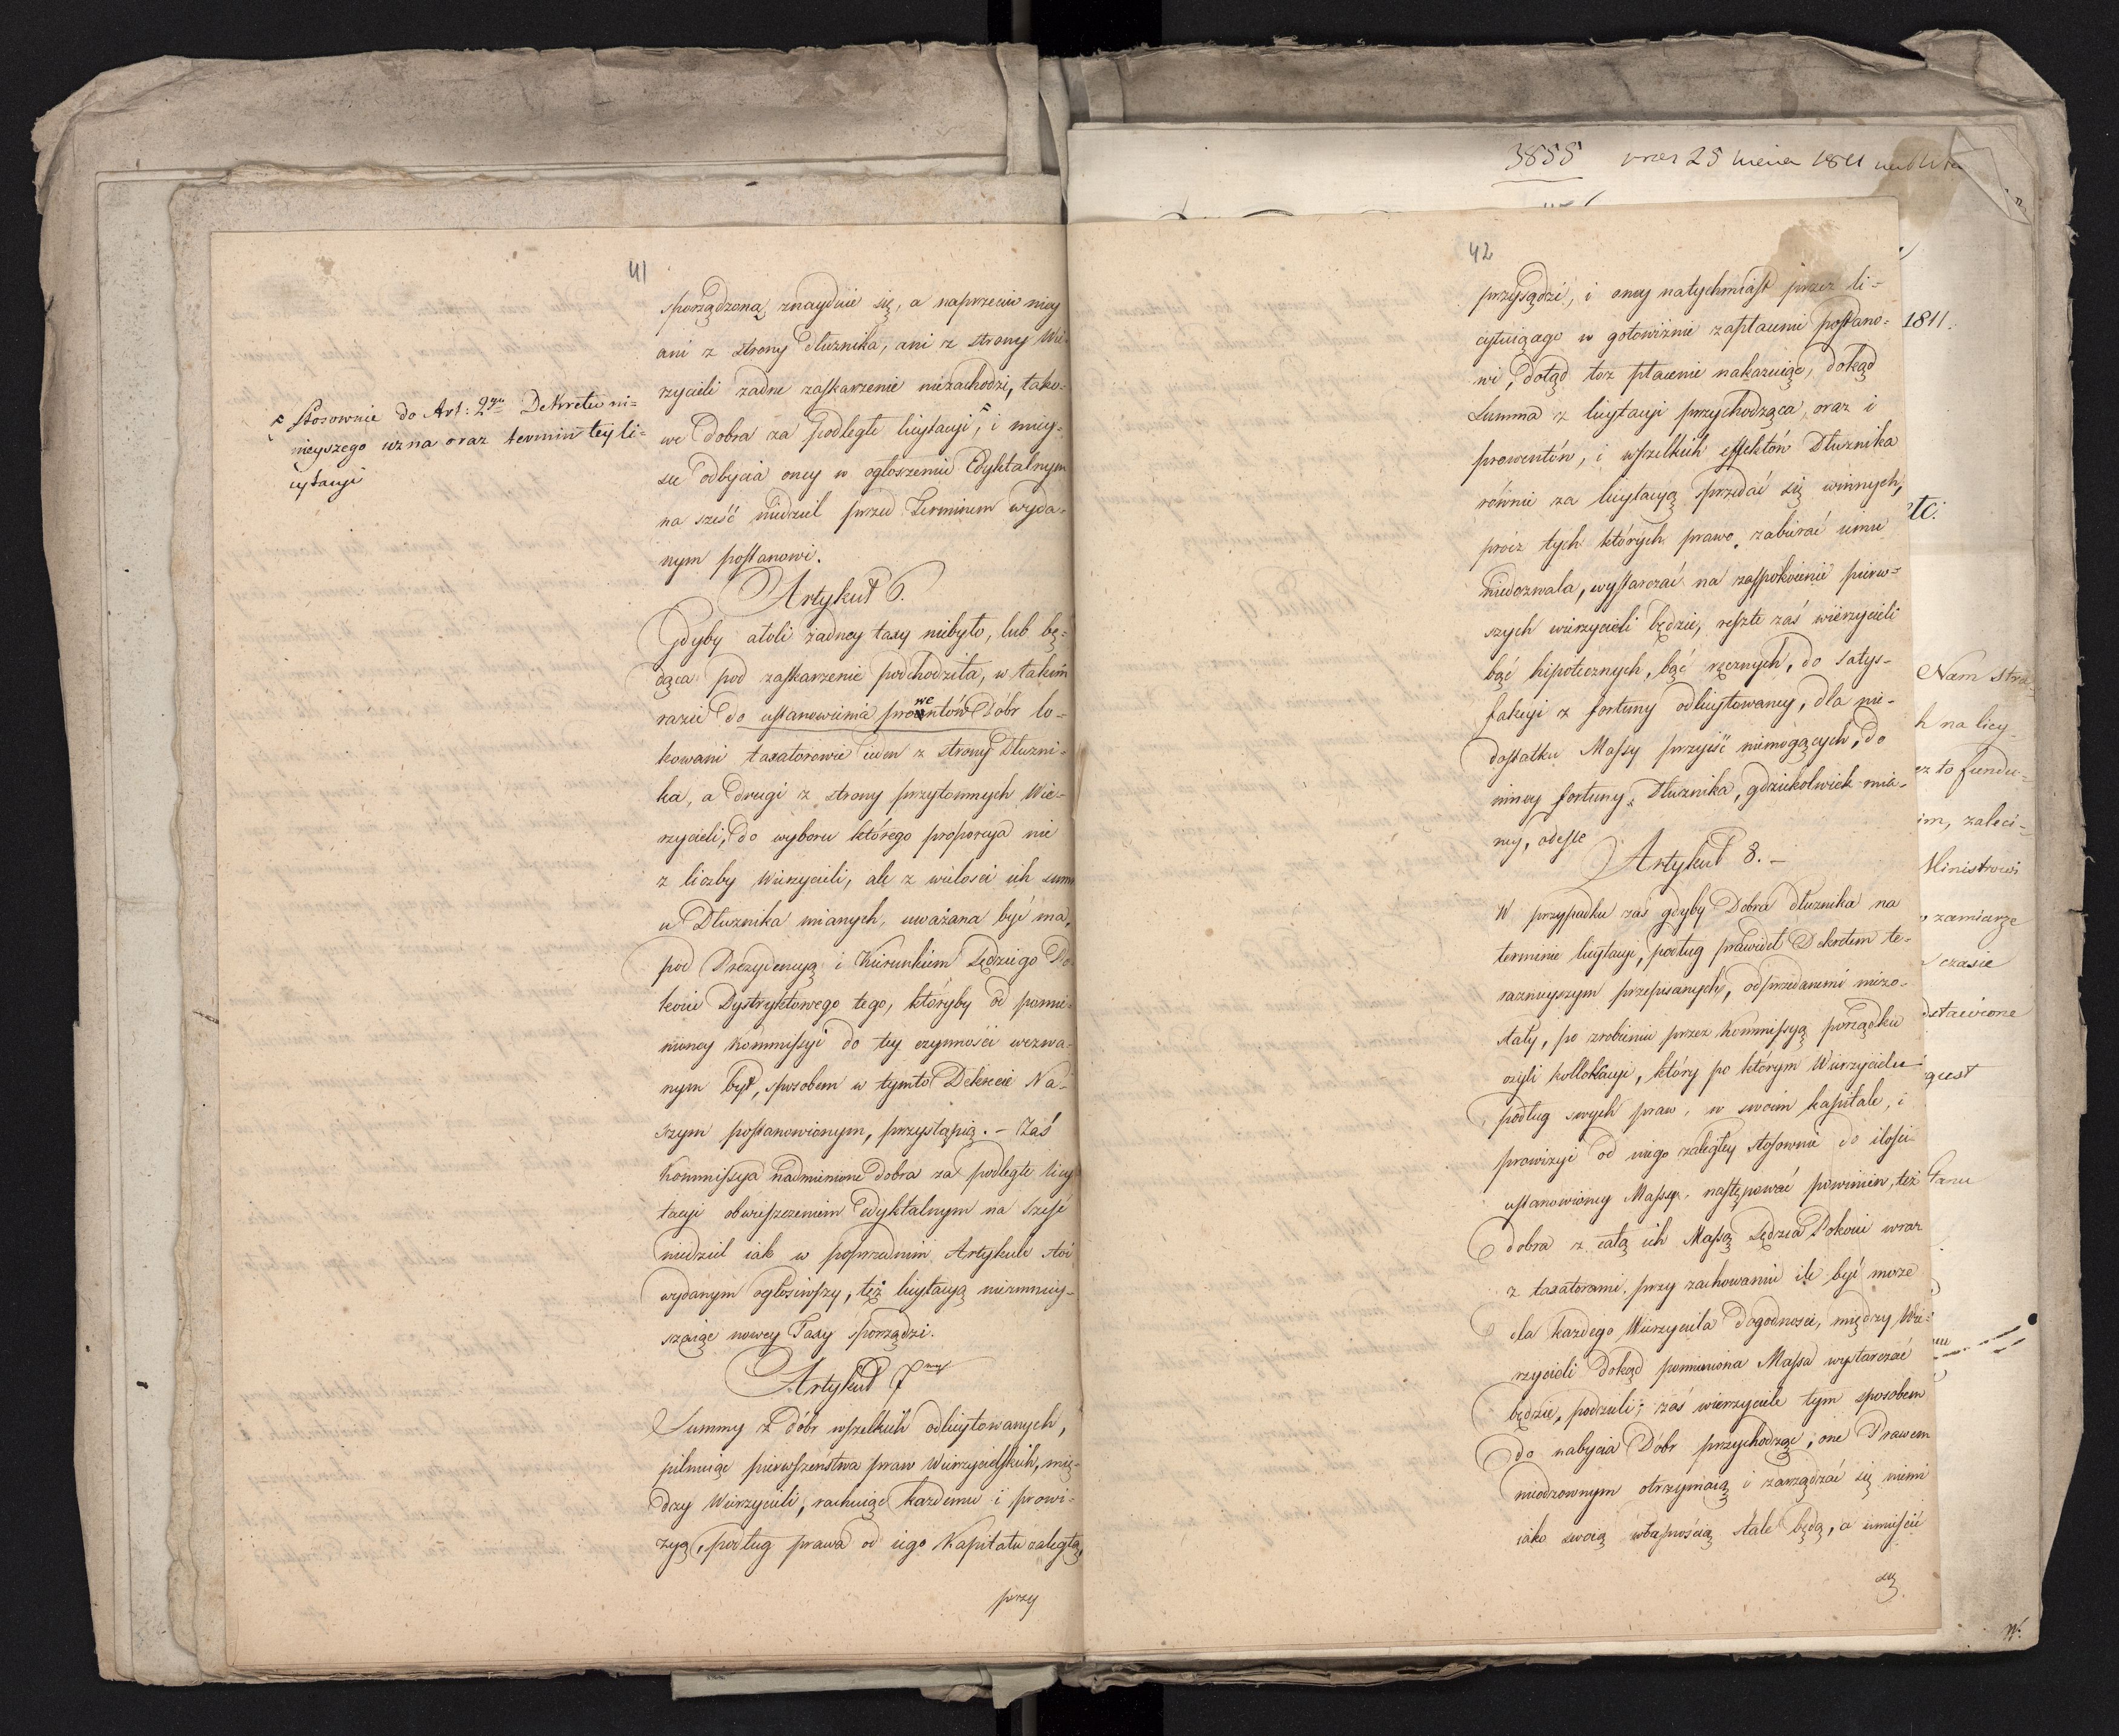 41
sporządzoną znayduie się, a naprzeciw niey
ani z strony Dłużnika, ani z strony Wie-
rzycieli żadne zaskarżenie niezachodzi, tako-
we Dobra za podległe licytacyi, i miey-
sce odbycia oney w ogłoszeniu Edyktalnym
na sześć niedziel przed Terminem wyda-
nym postanowi.
Stosownie do Art: 2go Dekretu ni-
nieyszego uzna oraz termin tey li-
cytacyi
Artykuł 6.
Gdyby atoli żadney taxy niebyło, lub bę-
dąca pod zaskarżenie podchodziła, w takim
razie do ustanowienia prowentów Dóbr lo-
kowani taxatorowie ieden z strony Dłużni-
ka, a drugi z strony przytomnych Wie-
rzycieli, do wyboru którego proporcya nie
z liczby Wierzycieli, ale z wielości ich summ
u Dłużnika mianych, uważana być ma,
pod Prezydencyą i Kierunkiem Sędziego Po-
koiu Dystryktowego tego, któryby od pomie-
nioney Kommissyi do tey czynności wezwa-
nym był, sposobem w tymto Dekrecie Na-
szym postanowionym, przystąpią. – Zaś
Kommissya nadmienione dobra za podległe licy-
tacyi obwieszczeniem edyktalnym na sześć
niedziel iak w poprzednim Artykule stoi
wydanym ogłosiwszy, też licytacyą niezmniey-
szaiąc nowey Taxy sporządzi.
Artykuł 7my
Summy z dóbr wszelkich odlicytowanych,
pilnuiąc pierwszeństwa praw Wierzycielskich, mię-
dzy Wierzycieli, rachuiąc każdemu i prowi-
zyą, podług prawa od iego Kapitału zaległą,
przy
42
przysądzi, i oney natychmiast przez li-
cytuiącego w gotowiźnie zapłacenie postano-
wi, dotąd toż płacenie nakazuiąc, dokąd
Summa z licytacyi przychodząca, oraz i
prowentów, i wszelkich effektów Dłużnika
równie za licytacyą sprzedać się winnych,
prócz tych których prawo zabierać iemu
niedozwala, wystarczać na zaspokoienie pierw-
szych wierzycieli będzie, resztę zaś wierzycieli
bądź hipotecznych, bądź ręcznych, do satys-
fakcyi z fortuny odlicytowaney, dla nie-
dostatku Massy przyiść niemogących, do
inney fortuny Dłużnika, gdziekolwiek mia-
ney, odeszle
Artykuł 8. –
W przypadku zaś gdyby Dobra dłużnika na
terminie licytacyi, podług prawideł Dekretem te-
raznieyszym przepisanych, odprzedanemi niezo-
stały, po zrobieniu przez Kommissyą porządku
czyli kollokacyi, który po którym Wierzycielu
podług swych praw, w swoim kapitale, i
prowizyi od niego zaległey stosownie do ilości
ustanowioney Massy, następować powinien, też
dobra z całą ich Massą Sędzia Pokoiu wraz
z taxatorami, przy zachowaniu ile być może
dla każdego Wierzyciela dogodności, między Wie-
rzycieli dokąd pomieniona Massa wystarczać
będzie, podzieli; zaś wierzyciele tym sposobem
do nabycia Dóbr przychodzące, one Prawem
nieodzownym otrzymaią i zarządzać się niemi
iako swoią własnością stale będą, a uiścić
się
3855
1811.
etc:
Nam stra-
h na licy-
ez to fundu-
im, zaleci-
Ministrowi
w zamiarze
czasie
dstawione
gust
Stanu